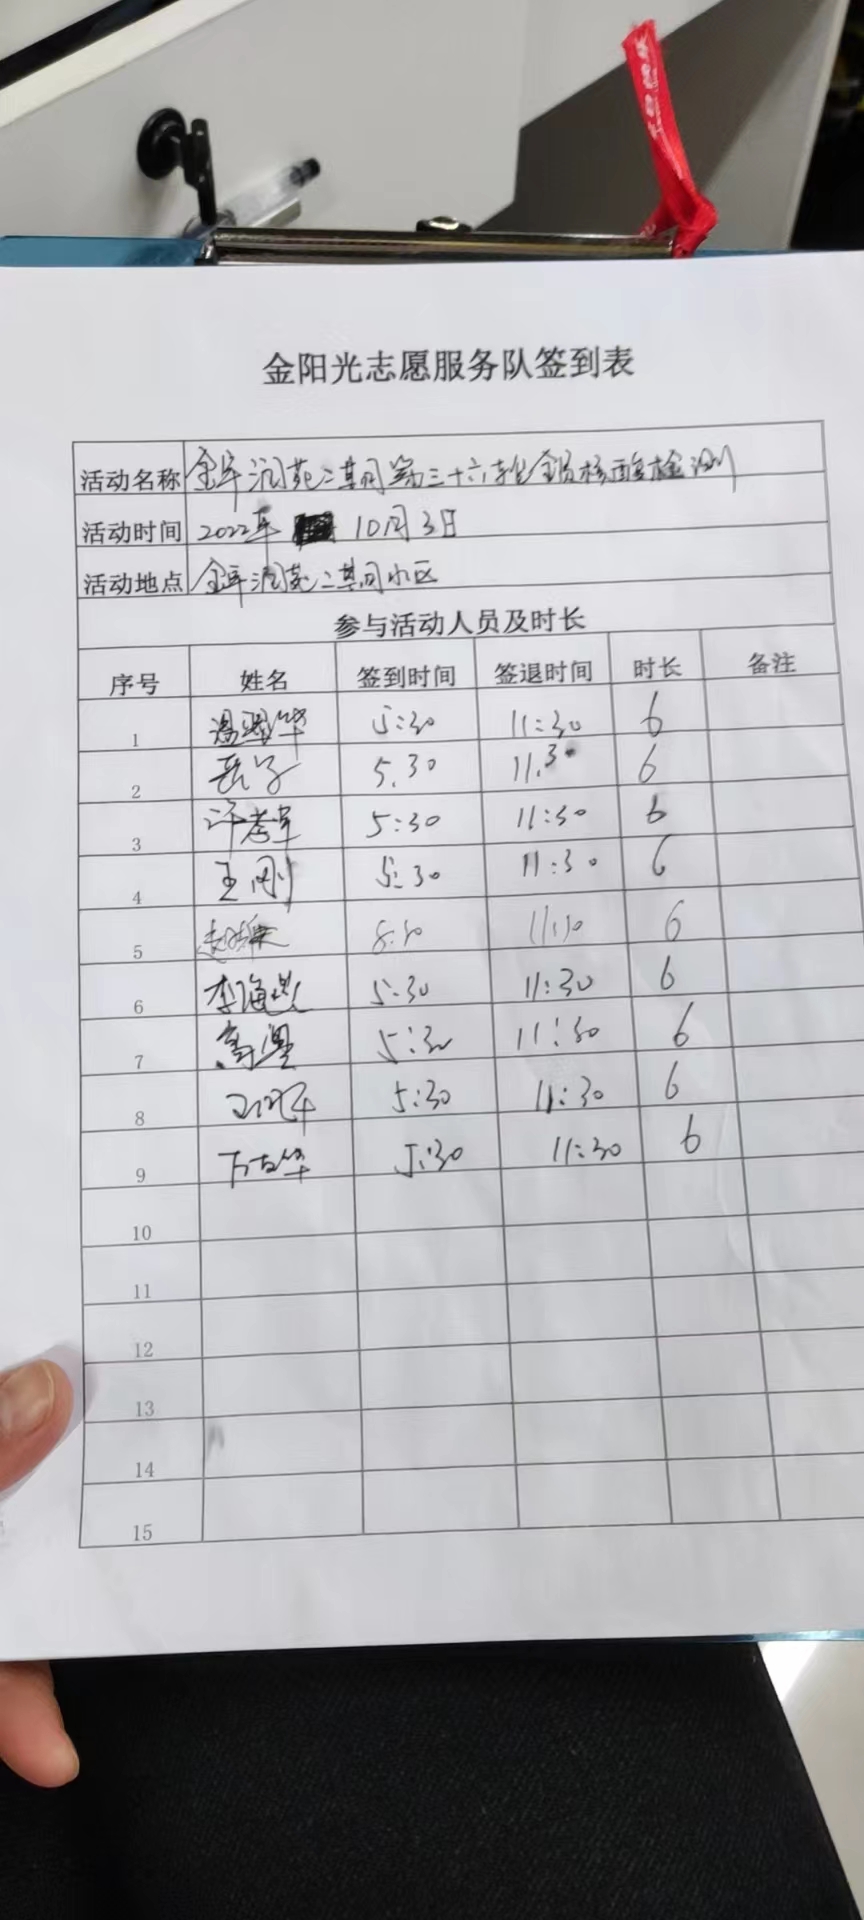 金阳光志愿服务队签到表
活动名称 二期第三十六轮全员核酸检测
活动时间 2022年 10月3日
活动地点 二期小区
参与活动人员及时长
序号 姓名 签到时间 签退时间 时长 备注
1 5:30 11:30 6
2 5.30 11.30 6
3 许孝军 5:30 11:30 6
4 王刚 5:30 11:30 6
5 6
6 李海 5:30 11:30 6
7 5:30 11:30 6
8 5:30 11:30 6
9 5:30 11:30 6
10
11
12
13
14
15